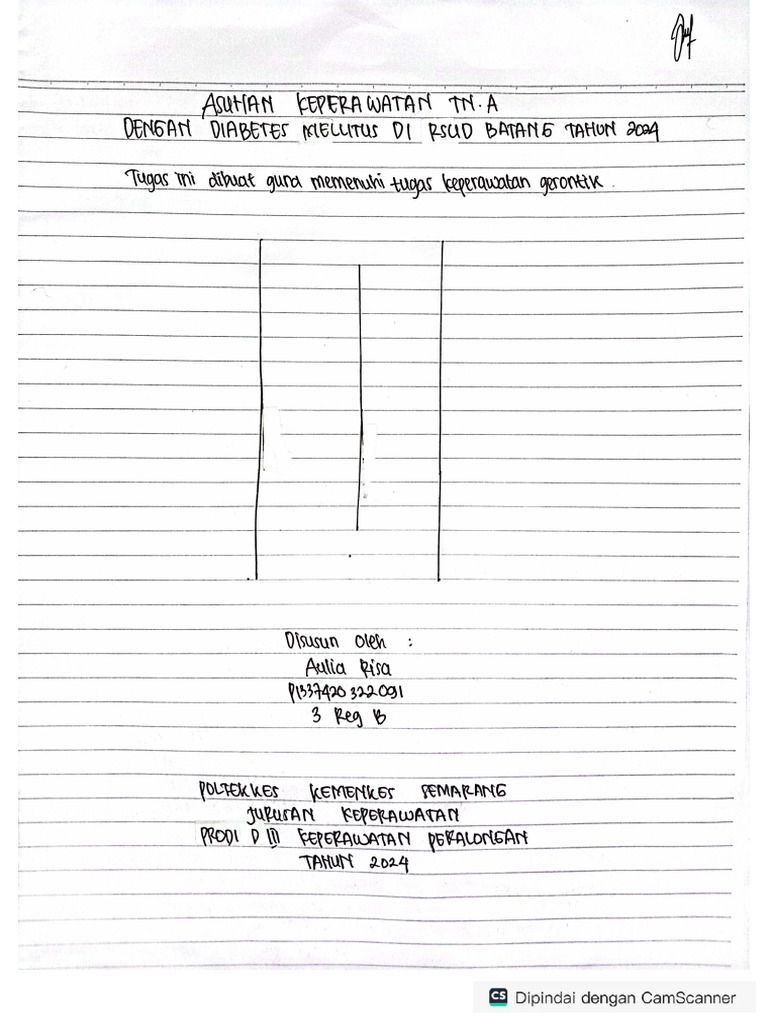 ASUHAN KEPERAWATAN TN. A
DENGAN DIABETES MELLITUS DI RSUD BATANG TAHUN 2024
Tugas ini dibuat guna memenuhi tugas keperawatan gerontik.
Disusun oleh :
Aulia Risa
P1337420322091
3 Reg B
POLTEKKES KEMENKES SEMARANG
JURUSAN KEPERAWATAN
PRODI D III KEPERAWATAN PEKALONGAN
TAHUN 2024
CS Dipindai dengan CamScanner